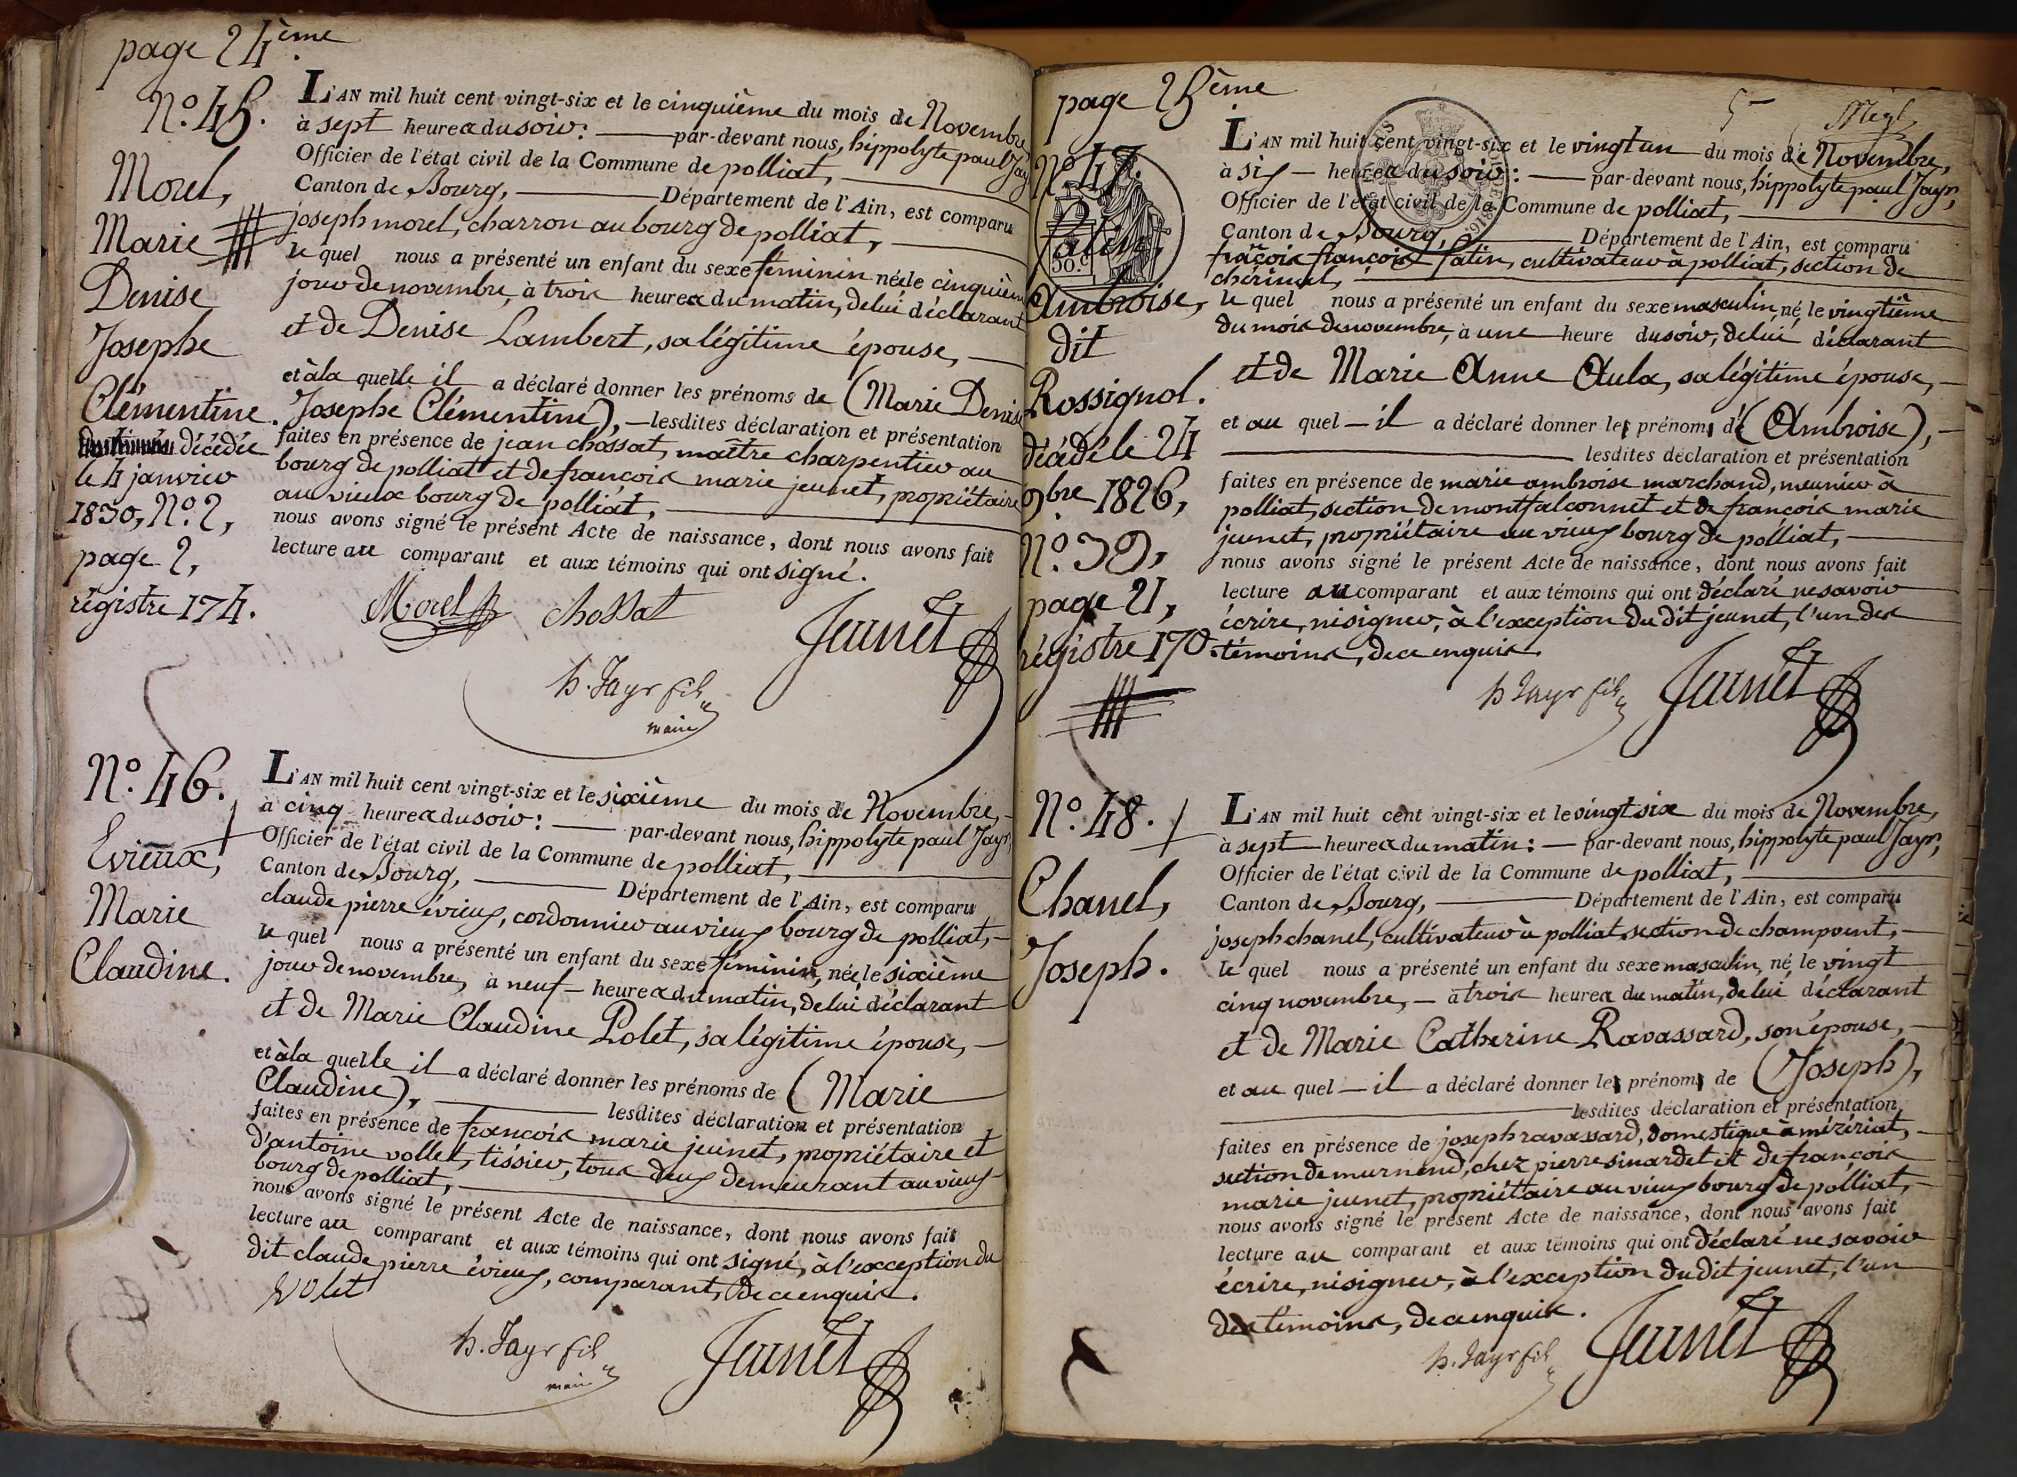 page 24ème
N.º 45.
Morel,
Marie
Denise
Josephe
Clémentine.
décédée
le 4 janvier
1830, N.º 2,
page 2,
régistre 174.
L'AN mil huit cent vingt-six et le cinquième du mois de Novembre,
à sept heures du soir: par-devant nous, hippolyte paul Jayr,
Officier de l'état civil de la Commune de polliat,
Canton de Bourg, Département de l'Ain, est comparu
joseph morel, charron au bourg de polliat,
le quel nous a présenté un enfant du sexe féminin née le cinquième
jour de novembre, à trois heures du matin, de lui déclarant
et de Denise Lambert, sa légitime épouse,
et à la quelle il a déclaré donner les prénoms de (Marie Denise
Josephe Clémentine), lesdites déclaration et présentation
faites en présence de jean chossat, maître charpentier au
bourg de polliat et de françois marie jeunet, propriétaire
au vieux bourg de polliat,
nous avons signé le présent Acte de naissance, dont nous avons fait
lecture au comparant et aux témoins qui ont signé.
Morel chossat Jeunet
h. Jayr fils
maire
N.º 46.
Evieux,
Marie
Claudine.
L'AN mil huit cent vingt-six et le sixième du mois de Novembre,
à cinq heures du soir: par-devant nous, hippolyte paul Jayr,
Officier de l'état civil de la Commune de polliat,
Canton de Bourg, Département de l'Ain, est comparu
claude pierre évieux, cordonnier au vieux bourg de polliat,
le quel nous a présenté un enfant du sexe féminin, née le sixième
jour de novembre, à neuf heures du matin, de lui déclarant
et de Marie Claudine Polet, sa légitime épouse,
et à la quelle il a déclaré donner les prénoms de (Marie
Claudine), lesdites déclaration et présentation
faites en présence de francois marie jeunet, propriétaire et
d'antoine vollet, tissier, tous deux demeurant au vieux
bourg de polliat,
nous avons signé le présent Acte de naissance, dont nous avons fait
lecture au comparant et aux témoins qui ont signé, à l'exception du
dit claude pierre évieux, comparant, de ce enquis.
volet
h. Jayr fils
maire
Jeunet
page 25ème
N.º 47.
fatin,
Ambroise,
dit
Rossignol.
décédé le 24
9bre 1826,
N.º 39,
page 21,
régistre 170.
L'AN mil huit cent vingt-six et le vingt un du mois de Novembre,
à six heures du soir: par-devant nous, hippolyte paul Jayr,
Officier de l'état civil de la Commune de polliat,
Canton de Bourg, Département de l'Ain, est comparu
françois fatin, cultivateur à polliat, section de
chérinal,
le quel nous a présenté un enfant du sexe masculin, né le vingtième
du mois de novembre, à une heure du soir, de lui déclarant
et de Marie Anne Aula, sa légitime épouse,
et au quel il a déclaré donner le prénom de (Ambroise),
lesdites déclaration et présentation
faites en présence de marie ambroise marchand, meunier à
polliat, section de montfalconnet et de françois marie
jeunet, propriétaire au vieux bourg de polliat,
nous avons signé le présent Acte de naissance, dont nous avons fait
lecture au comparant et aux témoins qui ont déclaré ne savoir
écrire, ni signer, à l'exception du dit jeunet, l'un des
témoins, de ce enquis.
h Jayr fils Jeunet
N.º 48.
Chanel,
Joseph.
L'AN mil huit cent vingt-six et le vingt six du mois de Novembre,
à sept heures du matin: par-devant nous, hippolyte paul Jayr,
Officier de l'état civil de la Commune de polliat,
Canton de Bourg, Département de l'Ain, est comparu
joseph chanel, cultivateur à polliat section de champvent,
le quel nous a présenté un enfant du sexe masculin, né le vingt
cinq novembre, à trois heures du matin, de lui déclarant
et de Marie Catherine Ravassard, son épouse,
et au quel il a déclaré donner le prénom de (Joseph),
lesdites déclaration et présentation
faites en présence de joseph ravassard, domestique à méziriat,
section de murnend, chez pierre sinardet et de françois
marie jeunet, propriétaire au vieux bourg de polliat,
nous avons signé le présent Acte de naissance, dont nous avons fait
lecture au comparant et aux témoins qui ont déclaré ne savoir
écrire, ni signer, à l'exception du dit jeunet, l'un
des témoins, de ce enquis.
h. Jayr fils Jeunet